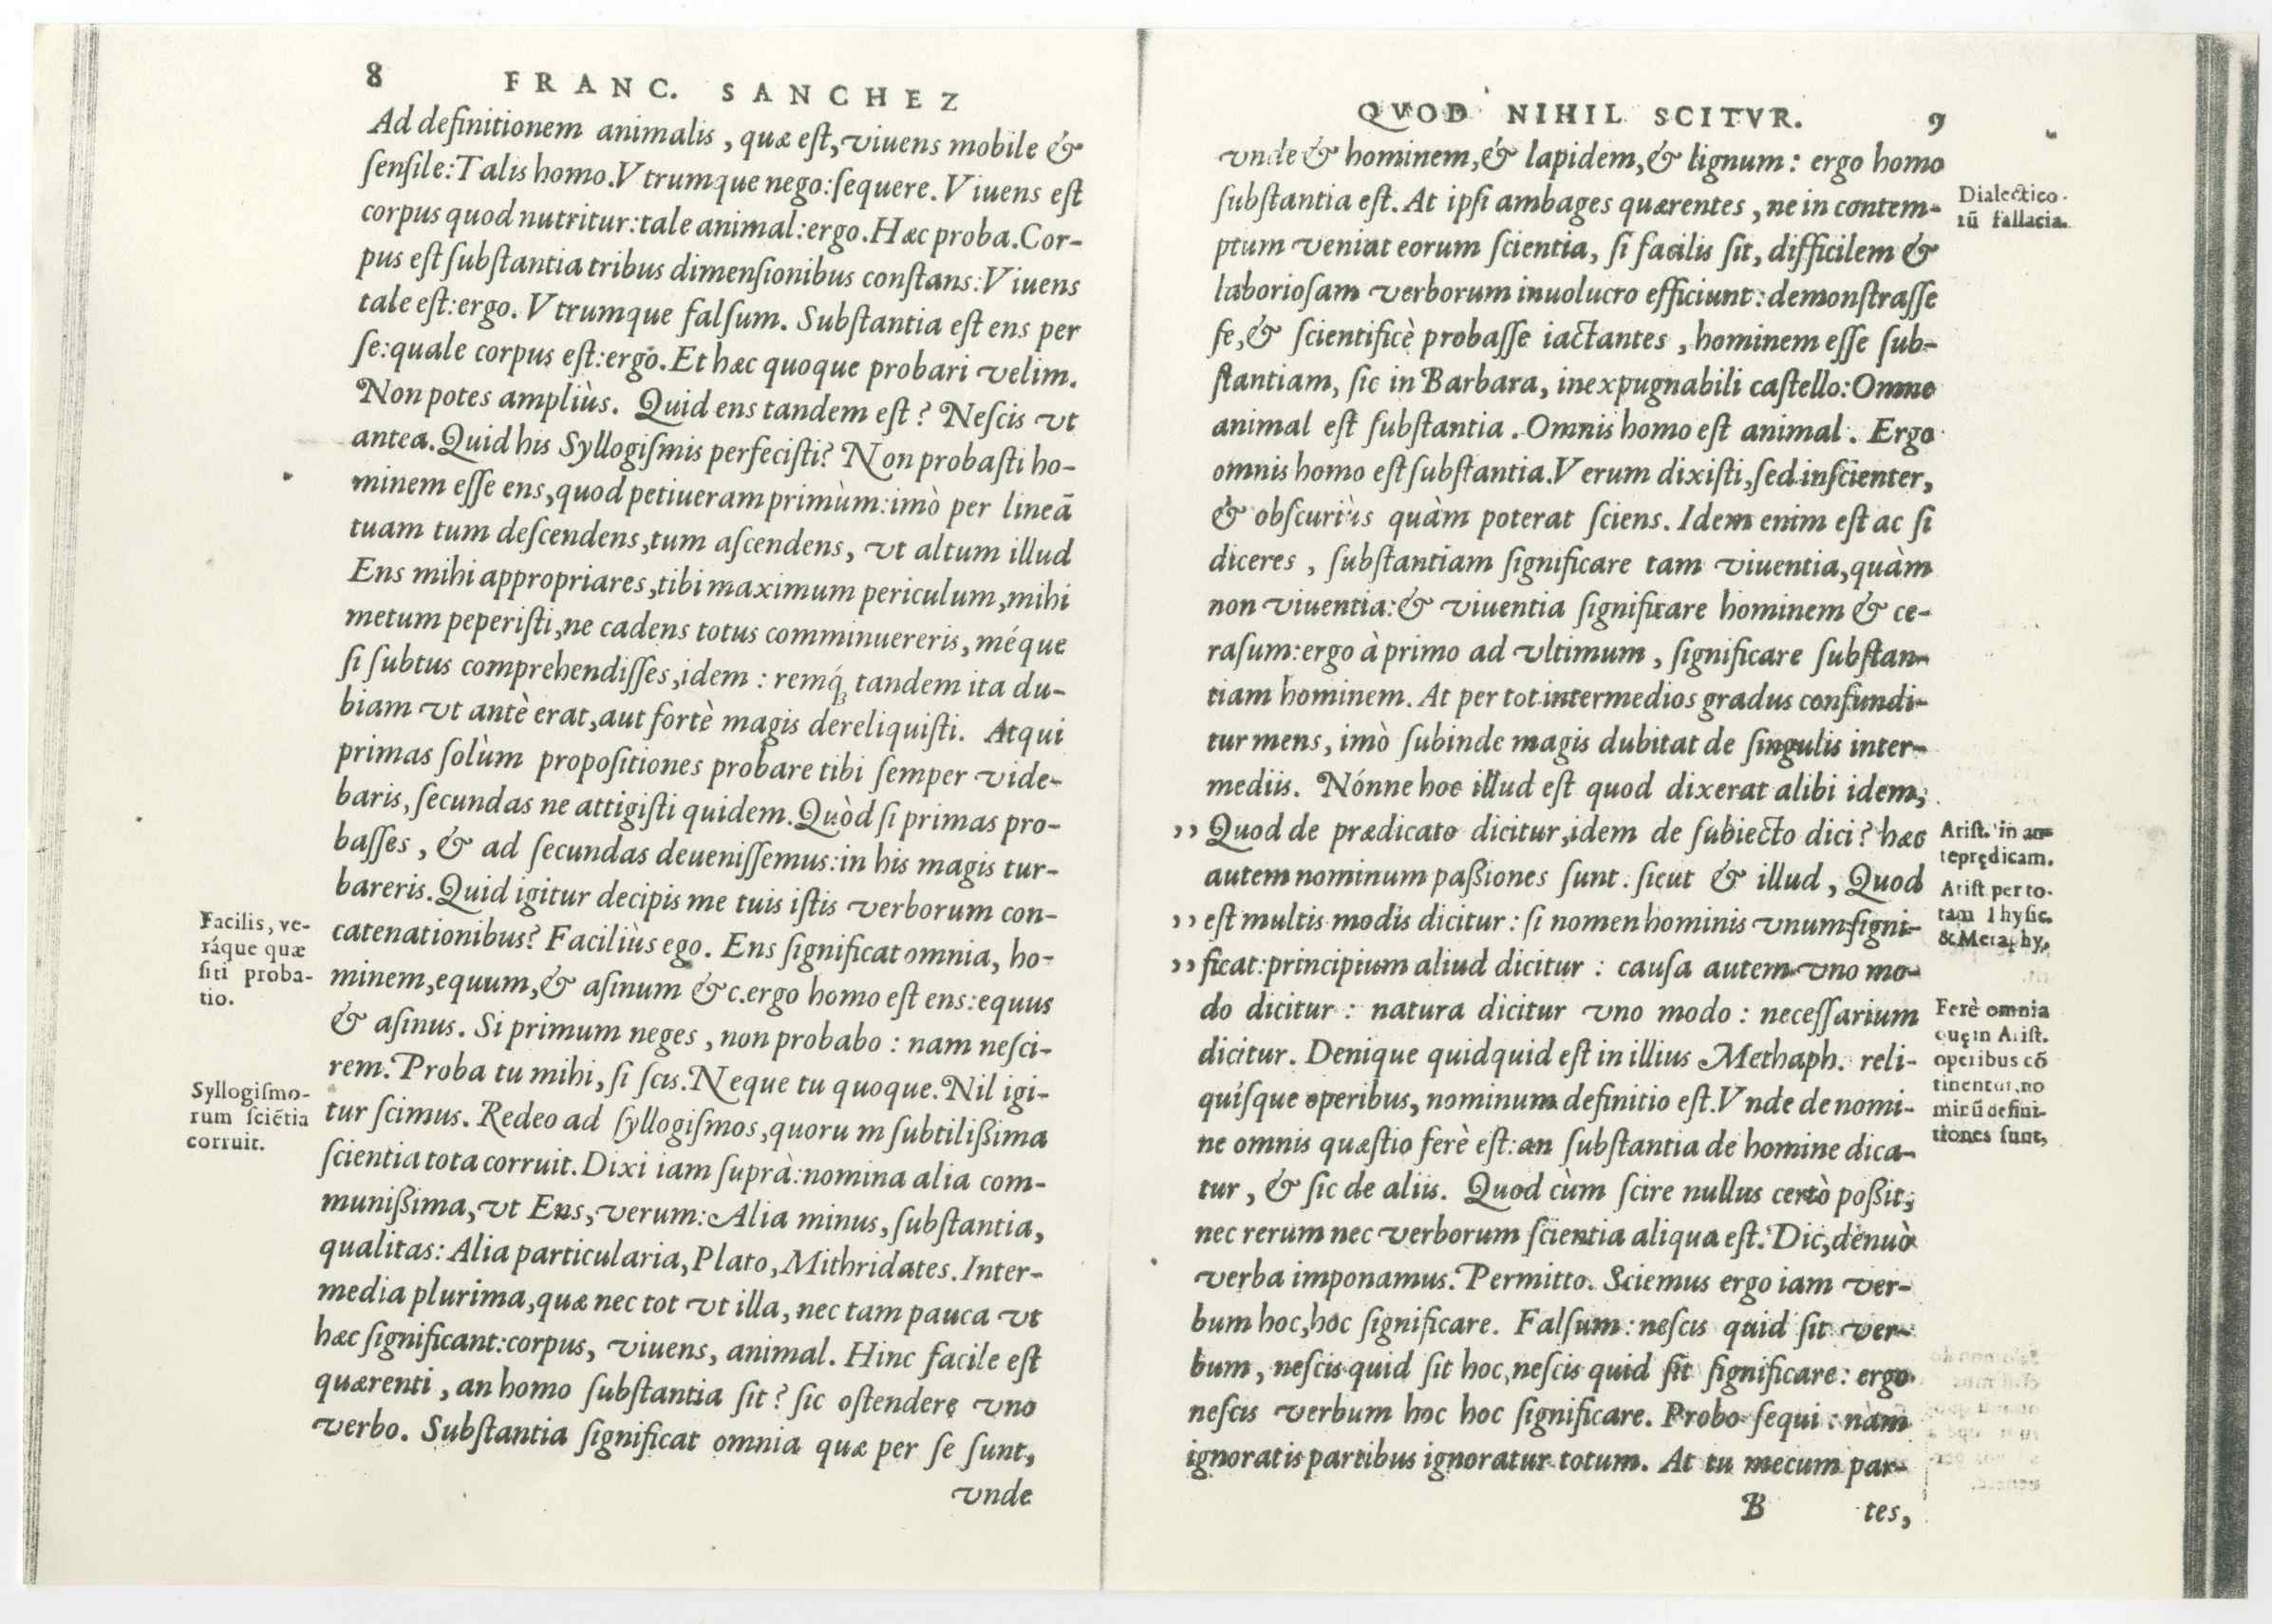 8 FRANC. SANCHEZ
Ad definitionem animalis, quæ eſt, viuens mobile &
ſenſile: Talis homo. Vtrumque nego: ſequere. Viuens eſt
corpus quod nutritur: tale animal: ergo. Hæc proba. Cor-
pus eſt ſubſtantia tribus dimenſionibus conſtans: Viuens
tale eſt: ergo. Vtrumque falſum. Subſtantia eſt ens per
ſe: quale corpus eſt: ergo. Et hæc quoque probari velim.
Non potes ampliùs. Quid ens tandem eſt? Neſcis vt
antea. Quid his Syllogiſmis perfeciſti? Non probaſti ho-
minem eſſe ens, quod petiueram primùm: imò per lineā
tuam tum deſcendens, tum aſcendens, vt altum illud
Ens mihi appropriares, tibi maximum periculum, mihi
metum peperiſti, ne cadens totus comminuereris, méque
ſi ſubtus comprehendiſſes, idem: remq́; tandem ita du-
biam vt antè erat, aut fortè magis dereliquiſti. Atqui
primas ſolùm propoſitiones probare tibi ſemper vide-
baris, ſecundas ne attigiſti quidem. Quòd ſi primas pro-
baſſes, & ad ſecundas deueniſſemus: in his magis tur-
bareris. Quid igitur decipis me tuis iſtis verborum con-
catenationibus? Faciliùs ego. Ens ſignificat omnia, ho-
minem, equum, & aſinum &c. ergo homo eſt ens: equus
& aſinus. Si primum neges, non probabo: nam neſci-
rem. Proba tu mihi, ſi ſcis. Neque tu quoque. Nil igi-
tur ſcimus. Redeo ad ſyllogiſmos, quorum ſubtilißima
ſcientia tota corruit. Dixi iam ſuprà: nomina alia com-
munißima, vt Ens, verum: Alia minus, ſubſtantia,
qualitas: Alia particularia, Plato, Mithridates. Inter-
media plurima, quæ nec tot vt illa, nec tam pauca vt
hæc ſignificant: corpus, viuens, animal. Hinc facile eſt
quærenti, an homo ſubſtantia ſit? ſic oſtendere vno
verbo. Subſtantia ſignificat omnia quæ per ſe ſunt,
vnde
Facilis, ve-
ráque quæ
ſiti proba-
tio.
Syllogiſmo-
rum ſciētia
corruit.
QVOD NIHIL SCITVR. 9
vnde & hominem, & lapidem, & lignum: ergo homo
ſubſtantia eſt. At ipſi ambages quærentes, ne in contem-
ptum veniat eorum ſcientia, ſi facilis ſit, difficilem &
laborioſam verborum inuolucro efficiunt: demonſtraſſe
ſe, & ſcientificè probaſſe iactantes, hominem eſſe ſub-
ſtantiam, ſic in Barbara, inexpugnabili caſtello: Omne
animal eſt ſubſtantia. Omnis homo eſt animal. Ergo
omnis homo eſt ſubſtantia. Verum dixiſti, ſed inſcienter,
& obſcuriùs quàm poterat ſciens. Idem enim eſt ac ſi
diceres, ſubſtantiam ſignificare tam viuentia, quàm
non viuentia: & viuentia ſignificare hominem & ce-
raſum: ergo à primo ad vltimum, ſignificare ſubſtan-
tiam hominem. At per tot intermedios gradus confundi-
tur mens, imò ſubinde magis dubitat de ſingulis inter-
mediis. Nónne hoc illud eſt quod dixerat alibi idem,
,, Quod de prædicato dicitur, idem de ſubiecto dici? hæc
autem nominum paßiones ſunt. ſicut & illud, Quod
,, eſt multis modis dicitur: ſi nomen hominis vnum ſigni-
,, ficat: principium aliud dicitur: cauſa autem vno mo-
do dicitur: natura dicitur vno modo: neceſſarium
dicitur. Denique quidquid eſt in illius Methaph. reli-
quíſque operibus, nominum definitio eſt. Vnde de nomi-
ne omnis quæſtio ferè eſt: an ſubſtantia de homine dica-
tur, & ſic de aliis. Quod cùm ſcire nullus certò poßit,
nec rerum nec verborum ſcientia aliqua eſt. Dic, denuò
verba imponamus. Permitto. Sciemus ergo iam ver-
bum hoc, hoc ſignificare. Falſum: neſcis quid ſit ver-
bum, neſcis quid ſit hoc, neſcis quid ſit ſignificare: ergo
neſcis verbum hoc hoc ſignificare. Probo ſequi: nam
ignoratis partibus ignoratur totum. At tu mecum par-
B tes,
Dialectico-
tū fallacia.
Ariſt. in an-
teprędicam.
Ariſt per to-
tam Phyſic.
& Metaphy.
Ferè omnia
quę in Ariſt.
operibus cō
tinentur, no
minū defini-
tiones ſunt,